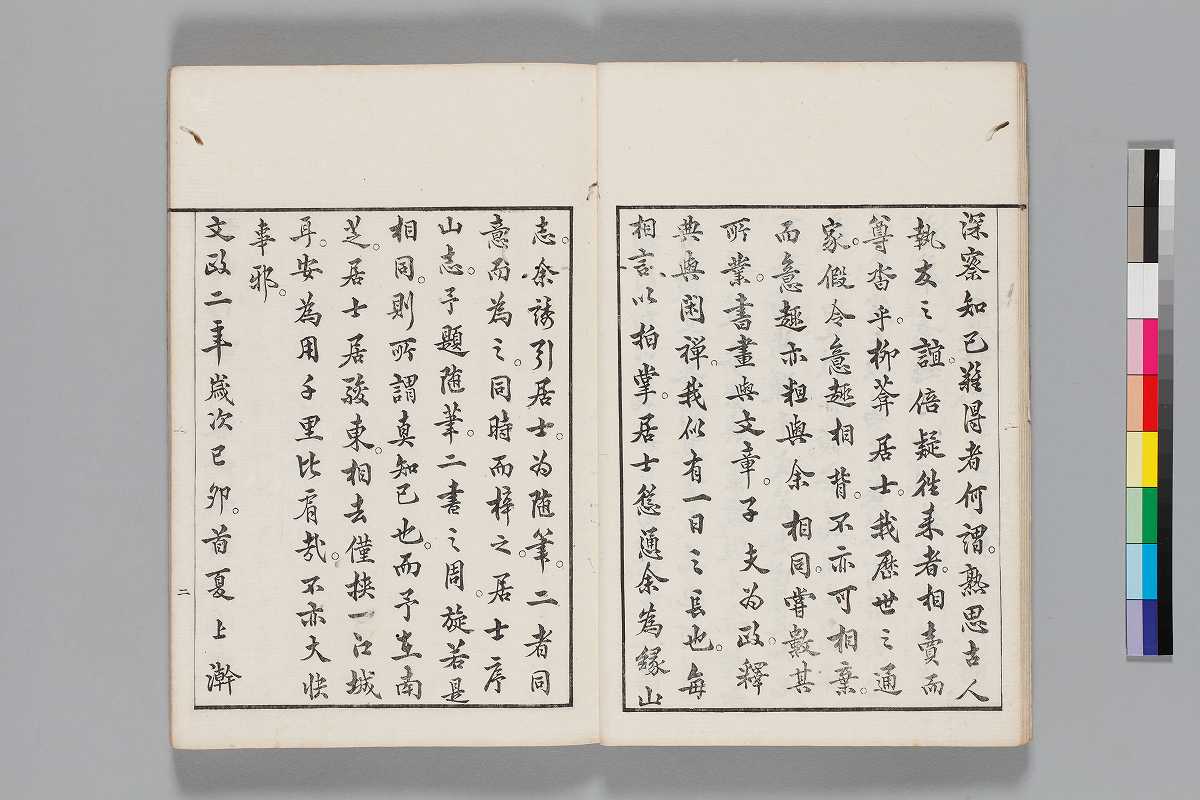 深察知己難得者何謂。熟思古人
執友之誼。倍疑徃来者。相賣而
蕁沓乎。柳葊居士。我歴世之通
家。假令意趣相背。不亦可相棄。
而意趣亦粗與余相同。嘗數其
所業。書畫與文章。子夫為政。釋
典與閑禅。我似有一日之長也。毎
相言以拍掌。居士慫慂余為縁山
志。余誘引居士。為随筆。二者同
意而為之。同時而梓之。居士序
山志。予題随筆。二書之周旋若是
相同。則所謂真知己也。而予在南
芝。居士居駿東。相去僅挟一江城
耳。安為用千里比肩哉。不亦大快
事邪。
文政二年歳次己卯。首夏上澣
二